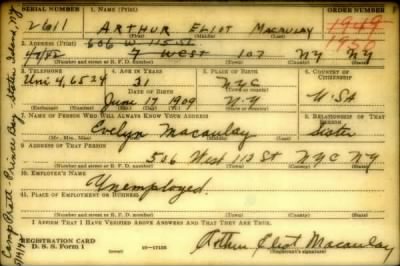 SERIAL NUMBER 1. NAME (Print) ORDER NUMBER
2611 ARTHUR ELIOT MACAULAY 1949
(First) (Middle) (Last) 1950
2. ADDRESS (Print)
606 W 115 St.
7 WEST 107 NY NY
(Number and street or R. F. D. number) (Town) (County) (State)
3. TELEPHONE 4. AGE IN YEARS 5. PLACE OF BIRTH 6. COUNTRY OF CITIZENSHIP
Uni 4, 6524 31 NYC
DATE OF BIRTH
June 17 1909 N.Y. USA
(Exchange) (Number) (Mo.) (Day) (Yr.) (State or country)
7. NAME OF PERSON WHO WILL ALWAYS KNOW YOUR ADDRESS 8. RELATIONSHIP OF THAT PERSON
Evelyn Macaulay Sister
(Mr., Mrs., Miss) (First) (Middle) (Last)
9. ADDRESS OF THAT PERSON
536 West 112 St NYC NY
(Number and street or R. F. D. number) (Town) (County) (State)
10. EMPLOYER'S NAME
Unemployed.
11. PLACE OF EMPLOYMENT OR BUSINESS
(Number and street or R. F. D. number) (Town) (County) (State)
I AFFIRM THAT I HAVE VERIFIED ABOVE ANSWERS AND THAT THEY ARE TRUE.
REGISTRATION CARD
D. S. S. Form 1 16-17105 Arthur Eliot Macaulay
(Registrant's signature)
Camp Pratt - Princes Bay - Staten Island, NY